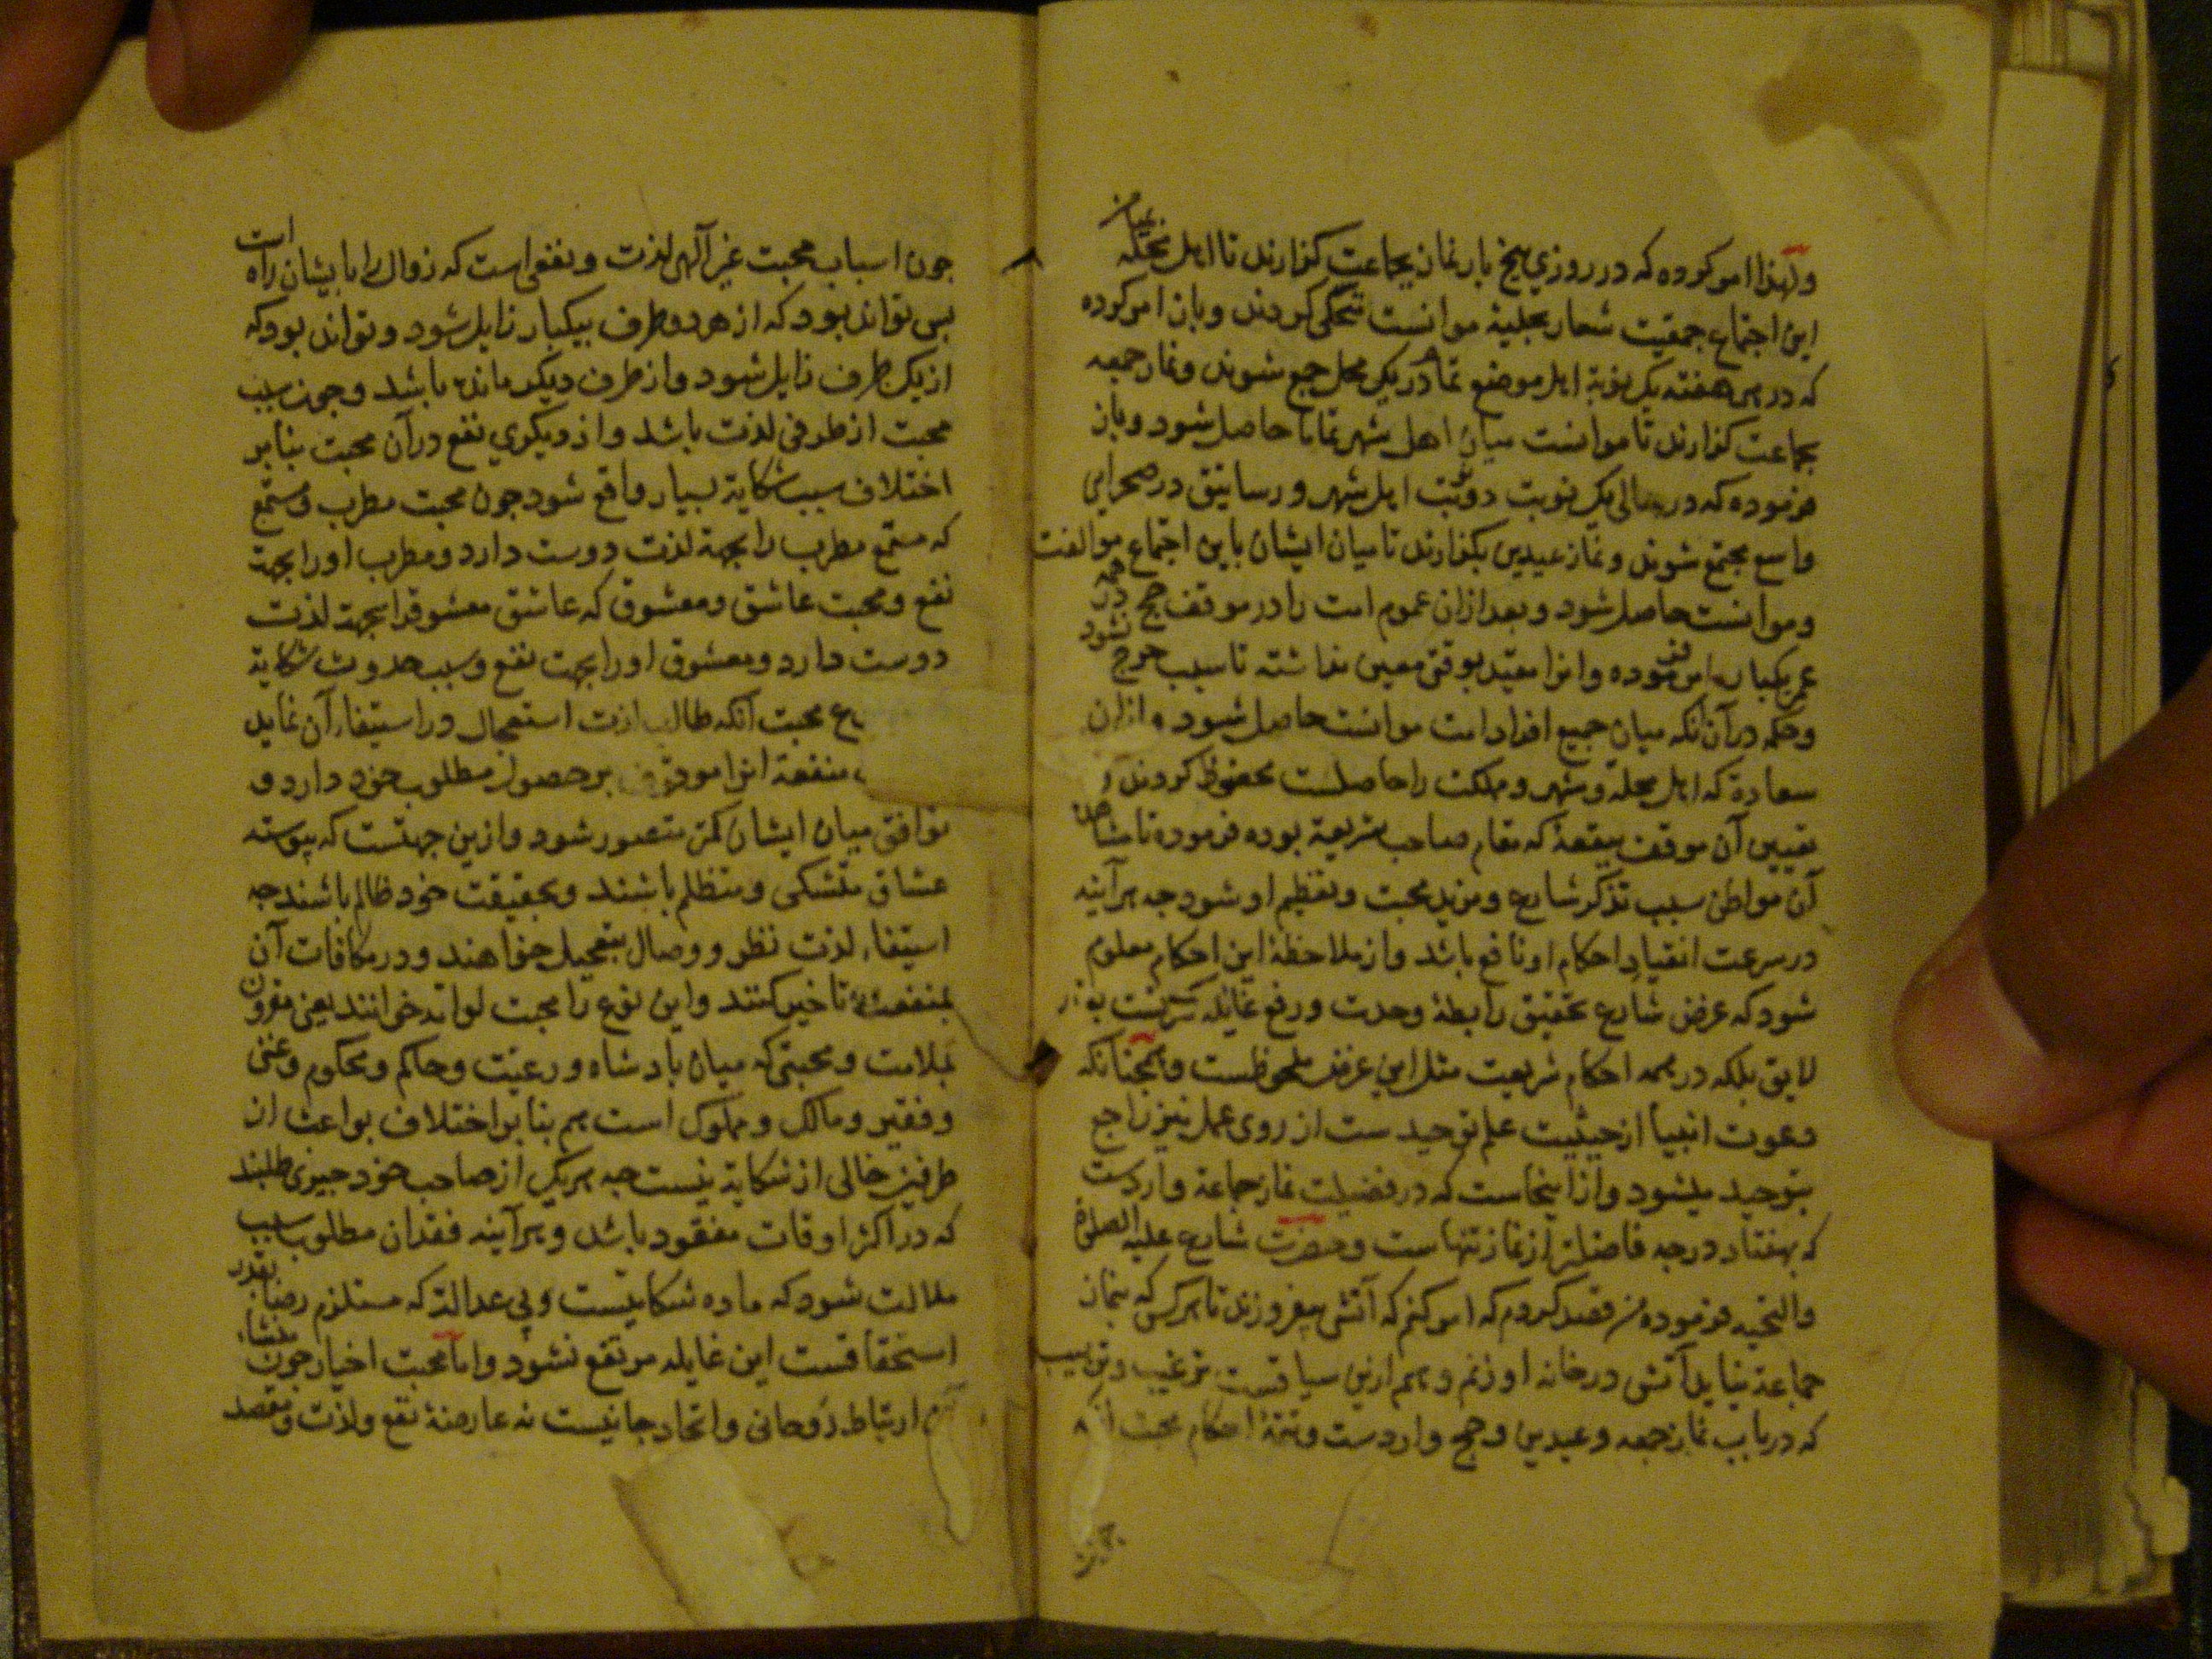 ولهذا امر کرده که در روزی پنج بار نماز بجماعت گذارند تا اهل محله
این اجتماع جمعیت شعار بحلیه موانست متحلی کردند وبان امر کرده
که در هر هفته یک نوبة اهل موضع تمام در یک محل جمع شوند ونماز جمعه
بجماعت کذارند تا موانست میان اهل شهر تماما حاصل شود وباز
فرموده که در سالی یک نوبت دو نوبت اهل شهر ورساتیق در صحرایی
واسع مجتمع شوند ونماز عیدین بکذارند تا میان ایشان باین اجتماع موالفت
وموانست حاصل شود وبعد ازان عموم امت را در موقف حج در همه
عمر یکبار امر فرموده وانرا مقید بوقتی معین نداشته تا سبب حرج نشود
وحکمه در آن انکه میان جمیع افراد امت موانست حاصل شود وازان
سعادة که اهل محله وشهر ومملکت را حاصلست محفوظ کردند و
تعیین آن موقف ببقعهٔ که مقام صاحب شریعة بوده فرموده تا مشاهدهٔ
آن مواطن سبب تذکر شارع ومزید محبت وتعظیم او شود جه هرآینه
در سرعت انقیاد احکام او نافع باشد واز ملاحظهٔ این احکام معلوم
شود که غرض شارع تحقیق رابطهٔ وحدت ورفع غائلهٔ کثرتست
لایق بلکه در همه احکام شریعت مثل این غرض ملحوظست وهمجنانکه
دعوت انبیا از حیثیت علم توحیدست از روی عمل نیز راجع
بتوحید میشود واز اینجاست که در فضیلت نماز جماعة واردست
که بهفتاد درجه فاضلتر از نماز تنهاست وحضرت شارع علیه الصلوة
والتحیه فرموده من قصد کردم که امر کنم که آتش بیفروزند تا هرکس که بنماز
جماعة نیاید آتش در خانه او زنم وهم ازین سیاقست ترغیب وترهیب
که در باب نماز جمعه وعیدین وحج واردست وتتمهٔ احکام محبت
جون اسباب محبت غیر آلهی لذت ونفعی است که زوال را بایشان راه است
بس تواند بود که از هر دو طرف بیکبار زایل شود وتواند بود که
از یک طرف زایل شود واز طرف دیکر مانده باشد وجون سبب
محبت از طرفی لذت باشد واز دیکری نفع در آن محبت بنابر
اختلاف سبب شکایة بسیار واقع شود جون محبت مطرب ومستمع
که مستمع مطرب را بجهة لذت دوست دارد ومطرب او را بجهة
نفع ومحبت عاشق ومعشوق که عاشق معشوقرا بجهة لذت
دوست دارد ومعشوق او را بجهت نفع وسبب حدوث شکایة
محبت آنکه طالب لذت استعجال در استیفاء آن نماید
منفعة انرا موقوف بر حصول مطلوب خود دارد و
توافق میان ایشان کمتر متصور شود وازین جهتست که پیوسته
عشاق متشکی ومتظلم باشند وبحقیقت خود ظالم باشند جه
استیفاء لذت نظر ووصال بتعجیل خواهند ودر مکافات آن
بمنفعت تاخیر کنند واین نوع را محبت لوامه خوانند یعنی مقرون
بملامت ومحبتی که میان بادشاه ورعیت وحاکم ومحکوم وغنی
وفقیر ومالک ومملوک است هم بنابر اختلاف بواعث از
طرفین خالی از شکایة نیست جه هر یک از صاحب خود جیزی طلبند
که در اکثر اوقات مفقود باشد وهرآینه فقدان مطلوب سبب
ملالت شود که ماده شکایتست وبی عدالة که مستلزم رضا بقدر
استحقاقست این غایله مرتفع نشود واما محبت اخیار جون منشاء
ارتباط روحانی واتحاد جانیست نه عارضهٔ نفع ولذت ومقصد